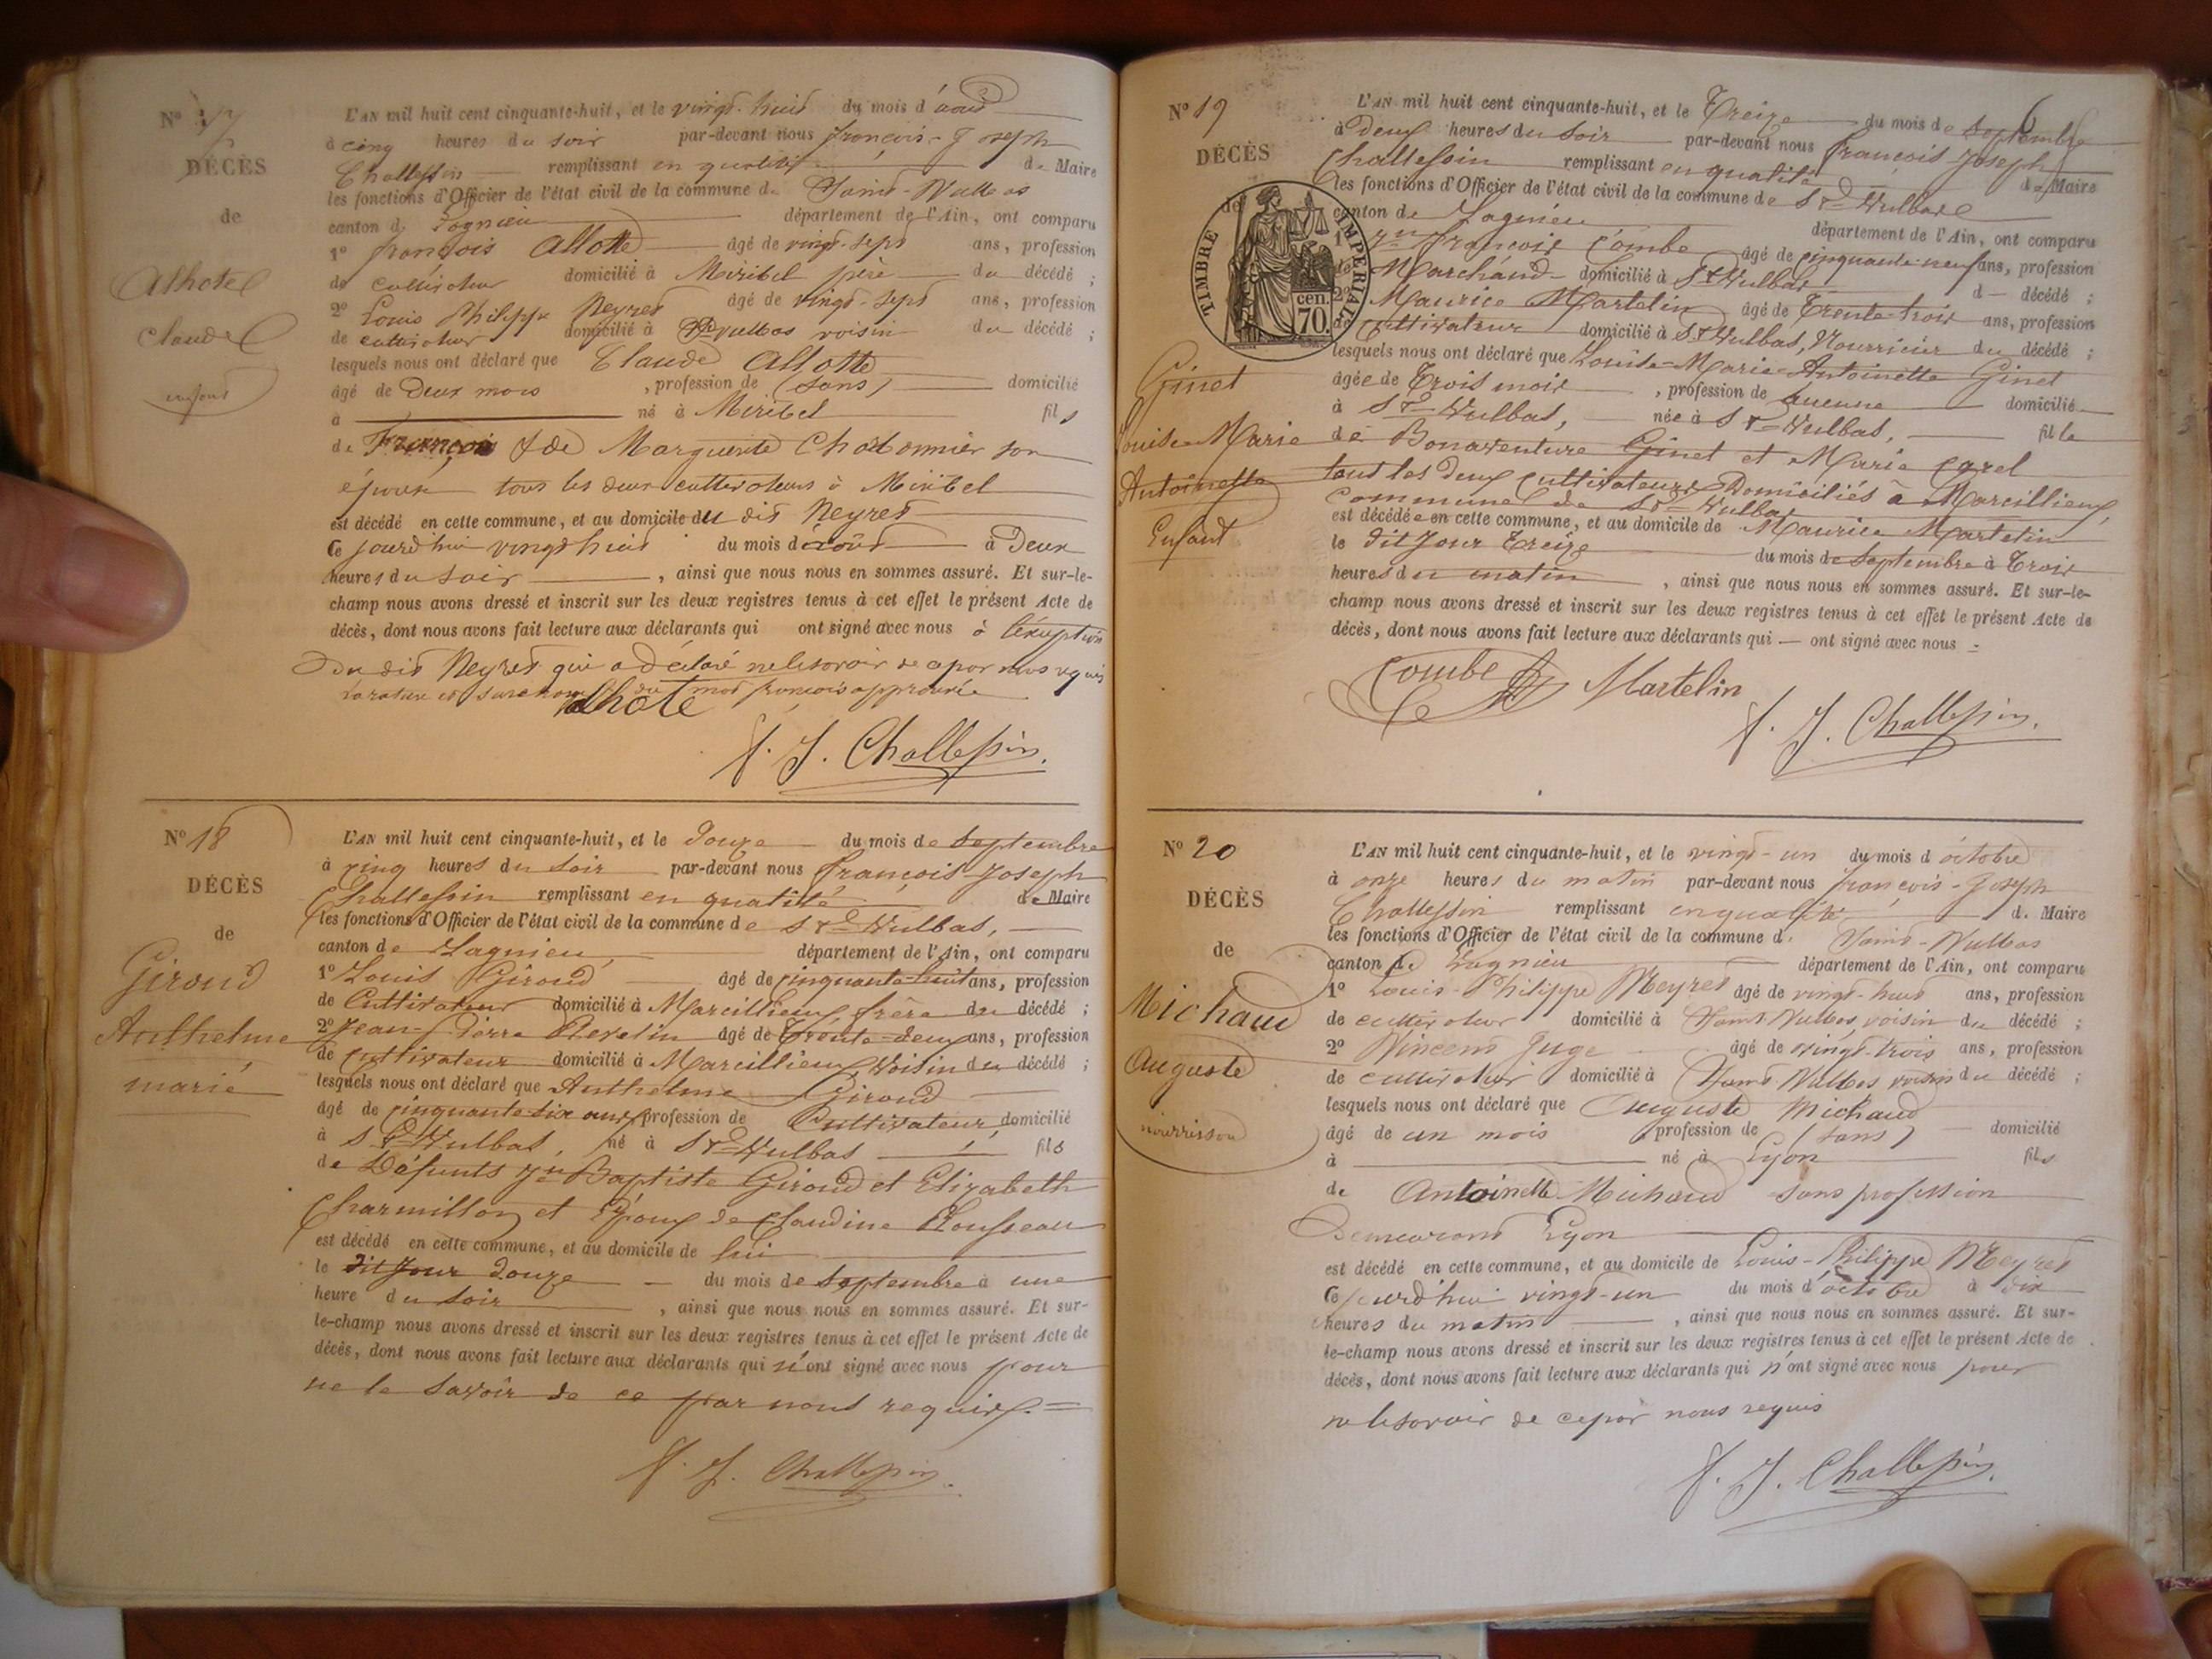 N° 17
DÉCÈS
de
Alhotel
Claude
enfant
L'AN mil huit cent cinquante-huit, et le vingt-huit du mois d'août
à cinq heures du soir par-devant nous françois-Joseph
Challessin remplissant en qualité de Maire
les fonctions d'Officier de l'état civil de la commune de Saint-Vulbas
canton de Lagnieu département de l'Ain, ont comparu
1° françois Allotte âgé de vingt-sept ans, profession
de cultivateur domicilié à Miribel père du décédé ;
2° Louis Philippe Neyret âgé de vingt-sept ans, profession
de cultivateur domicilié à St Vulbas voisin du décédé ;
lesquels nous ont déclaré que Claude Allotte
âgé de Deux mois , profession de (sans) domicilié
à né à Miribel fils
de François & de Marguerite Chabonnier son
épouse tous les deux cultivateurs à Miribel
est décédé en cette commune, et au domicile du dit Neyret
Ce jourd'hui vingt huit du mois d'août à Deux
heures du soir , ainsi que nous nous en sommes assuré. Et sur-le-
champ nous avons dressé et inscrit sur les deux registres tenus à cet effet le présent Acte de
décès, dont nous avons fait lecture aux déclarants qui ont signé avec nous à l'éxuption
du dit Neyret qui a déclaré ne le savoir de ce par nous requis
la rature et surcharge du mot françois approuvée
alhote
f. J. Challessin.
N° 18
DÉCÈS
de
Giroud
Anthelme
marié
L'AN mil huit cent cinquante-huit, et le Douze du mois de Septembre
à cinq heures du soir par-devant nous françois Joseph
Challessin remplissant en qualité de Maire
les fonctions d'Officier de l'état civil de la commune de St Vulbas,
canton de Lagnieu, département de l'Ain, ont comparu
1° Louis Giroud âgé de cinquante-huit ans, profession
de Cultivateur domicilié à Marcillieux frère du décédé ;
2° Jean-Pierre âgé de Trente-deux ans, profession
de cultivateur domicilié à Marcillieux, Voisin du décédé ;
lesquels nous ont déclaré que Anthelme Giroud
âgé de cinquante-six ans, profession de Cultivateur, domicilié
à St Vulbas, né à St Vulbas fils
de Défunts Jn Baptiste Giroud et Elizabeth
Charmillon et Epoux de Claudine Rousseau
est décédé en cette commune, et au domicile de lui
le dit Jour Douze du mois de Septembre à une
heure du soir , ainsi que nous nous en sommes assuré. Et sur-
le-champ nous avons dressé et inscrit sur les deux registres tenus à cet effet le présent Acte de
décès, dont nous avons fait lecture aux déclarants qui n'ont signé avec nous pour
ne le savoir de ce par nous requis.=
f. J. Challessin.
6
N° 19
DÉCÈS
de
TIMBRE IMPERIAL
70. cen.
Ginet
Louise Marie
Antoinette
Enfant
L'AN mil huit cent cinquante-huit, et le Treize du mois de Septembre
à Deux heures du soir par-devant nous françois Joseph
Challessin remplissant en qualité de Maire
les fonctions d'Officier de l'état civil de la commune de St Vulbas
canton de Lagnieu département de l'Ain, ont comparu
1° Jn françois Combe âgé de cinquante-neuf ans, profession
de Marchand domicilié à St Vulbas d décédé ;
2° Maurice Martelin âgé de Trente-trois ans, profession
de Cultivateur domicilié à St Vulbas, Nourricier du décédé ;
lesquels nous ont déclaré que Louise-Marie-Antoinette Ginet
âgée de Trois mois , profession de aucune domicilié
à St Vulbas, née à St Vulbas, fille
de Bonaventure Ginet et Marie
tout les Deux Cultivateurs Domiciliés à Marcillieux,
Commune de St Vulbas
est décédée en cette commune, et au domicile de Maurice Martelin
le dit Jour Treize du mois de Septembre à Trois
heures du matin , ainsi que nous nous en sommes assuré. Et sur-le-
champ nous avons dressé et inscrit sur les deux registres tenus à cet effet le présent Acte de
décès, dont nous avons fait lecture aux déclarants qui — ont signé avec nous =
Combe Martelin
f. J. Challessin.
N° 20
DÉCÈS
de
Michaud
Auguste
nourrisson
L'AN mil huit cent cinquante-huit, et le vingt-un du mois d'octobre
à onze heures du matin par-devant nous françois-Joseph
Challessin remplissant en qualité de Maire
les fonctions d'Officier de l'état civil de la commune de Saint-Vulbas
canton de Lagnieu département de l'Ain, ont comparu
1° Louis-Philippe Neyret âgé de vingt-huit ans, profession
de cultivateur domicilié à Saint Vulbas, voisin du décédé ;
2° Vincent Juge âgé de vingt-trois ans, profession
de cultivateur domicilié à Saint Vulbas voisin du décédé ;
lesquels nous ont déclaré que Auguste Michaud
âgé de un mois , profession de (sans) domicilié
à né à Lyon fils
de Antoinette Michaud sans profession
Demeurant Lyon
est décédé en cette commune, et au domicile de Louis-Philippe Neyret
Ce jourd'hui vingt-un du mois d'octobre à dix
heures du matin , ainsi que nous nous en sommes assuré. Et sur-
le-champ nous avons dressé et inscrit sur les deux registres tenus à cet effet le présent Acte de
décès, dont nous avons fait lecture aux déclarants qui n'ont signé avec nous pour
ne le savoir de ce par nous requis
f. J. Challessin.